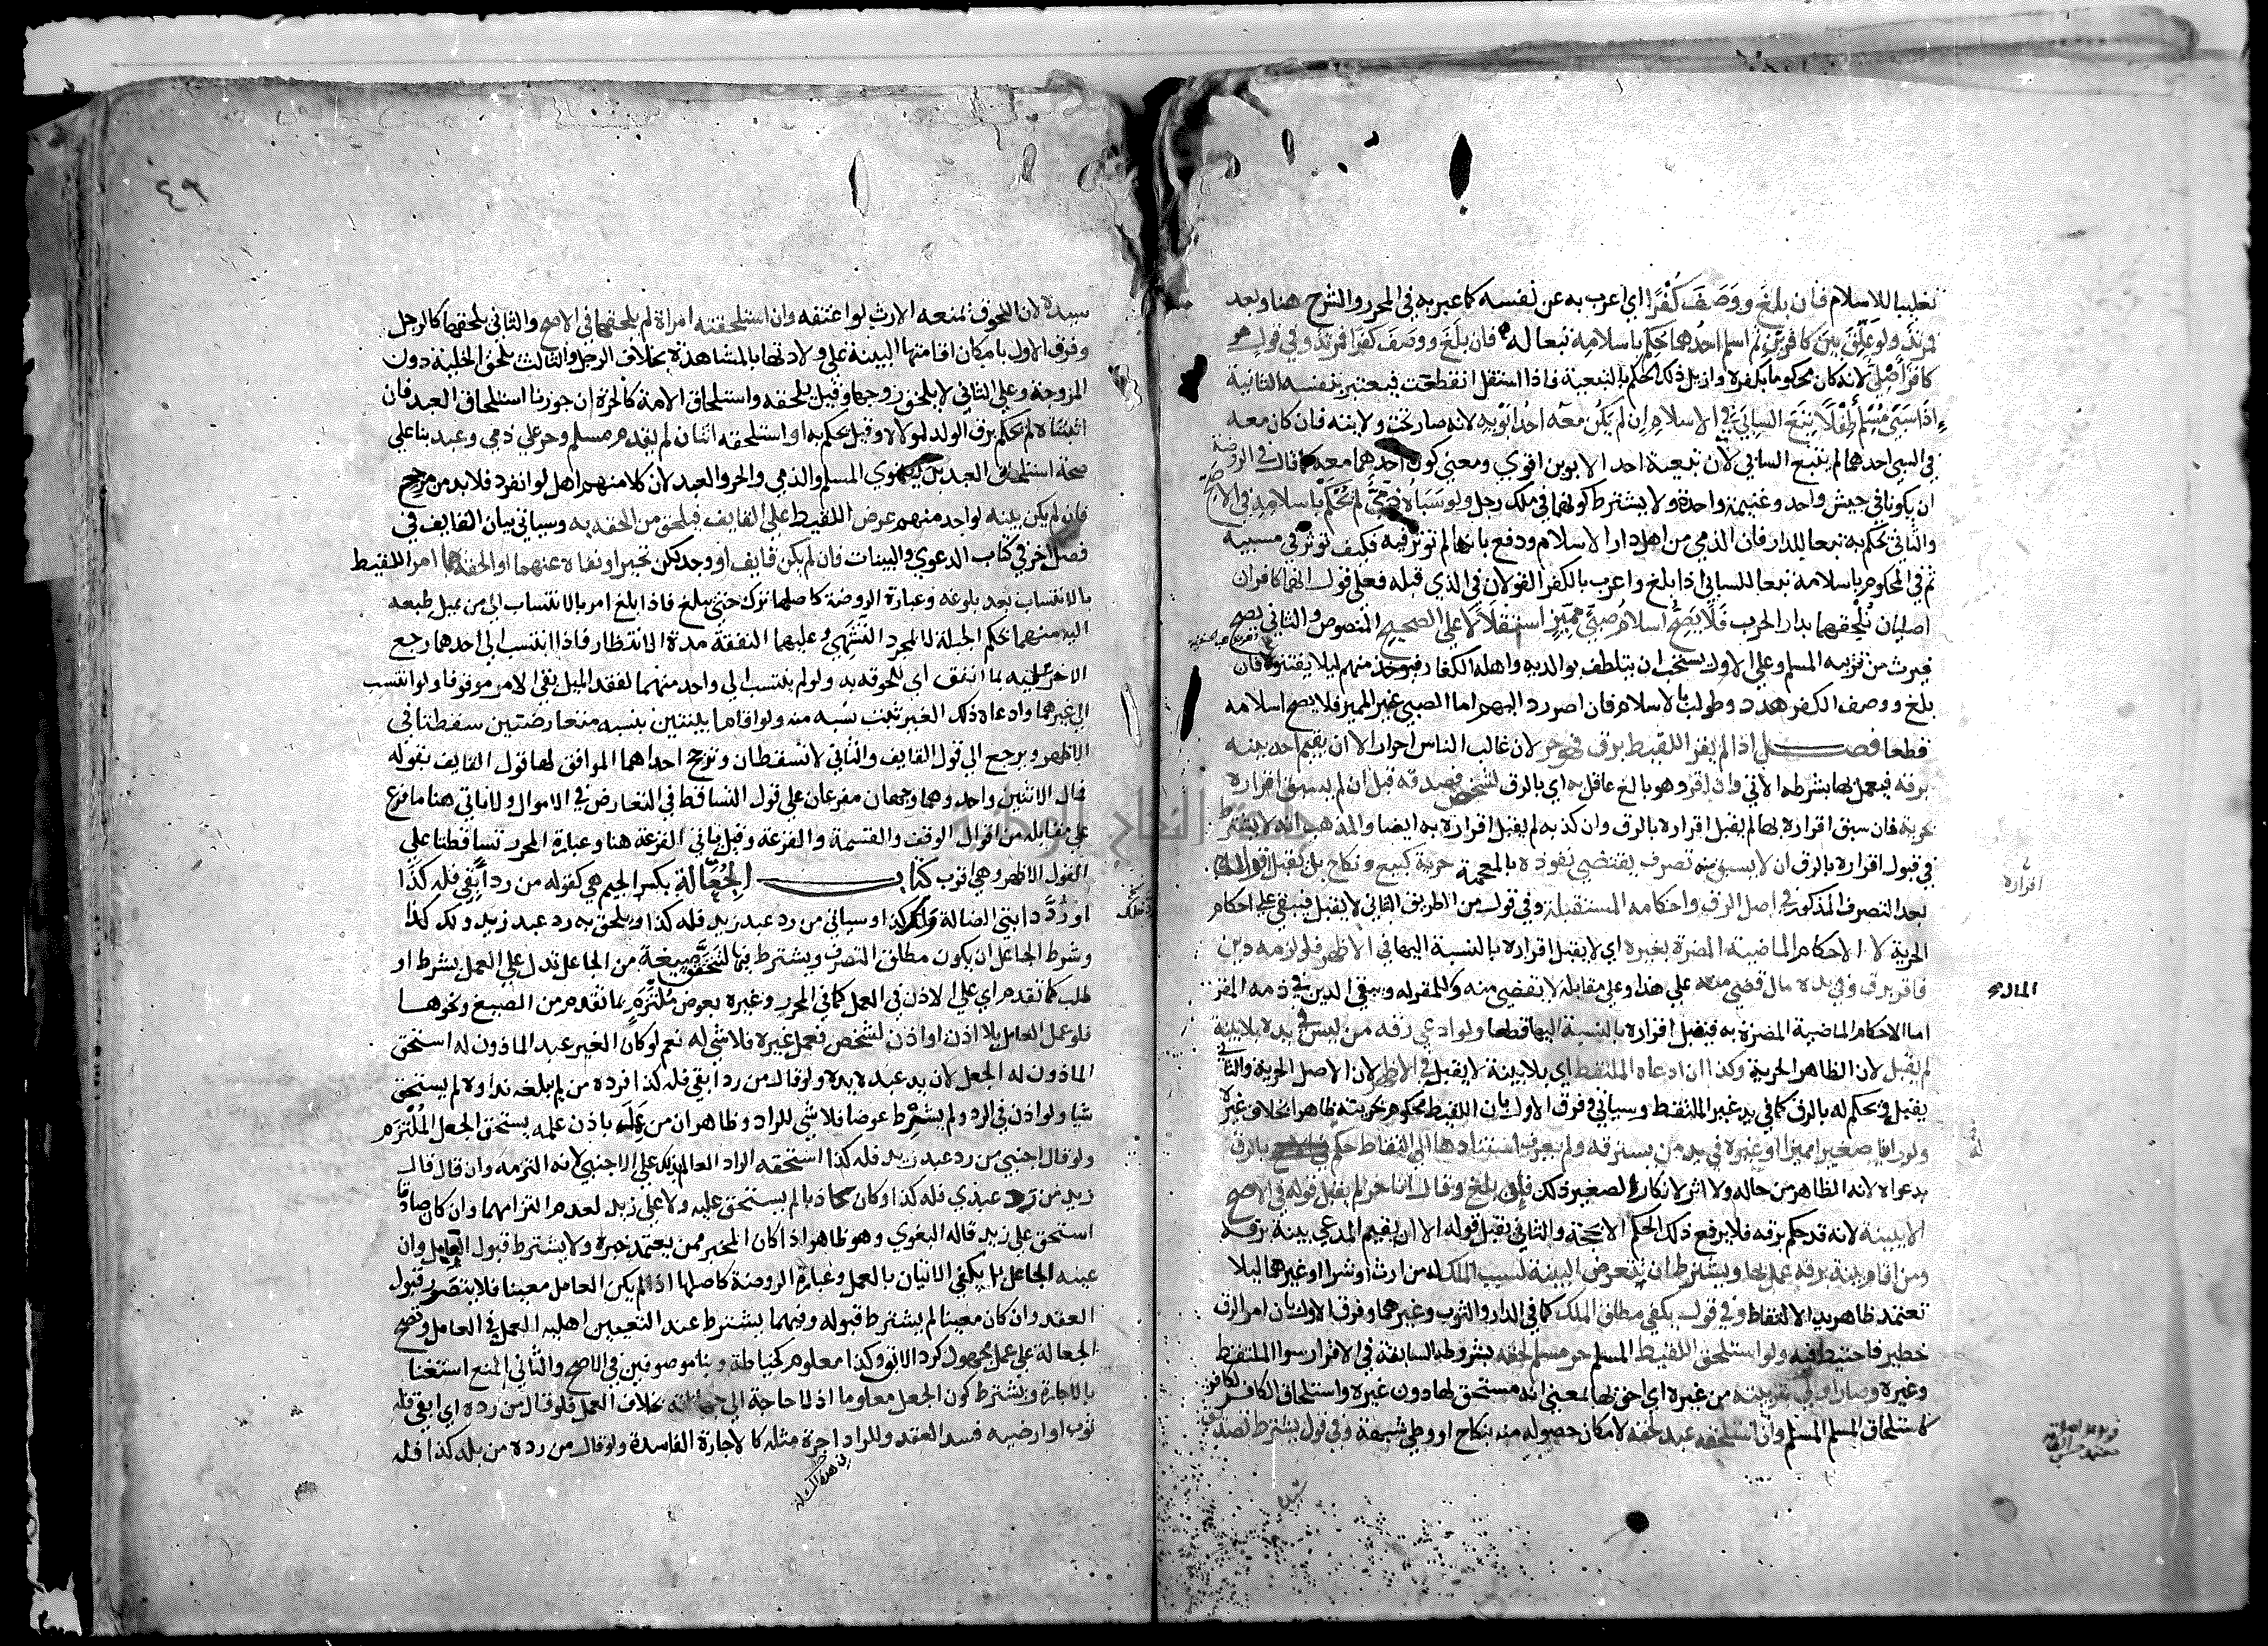 تغليبا للاسلام فان بلغ ووصف كفرا اي اعرب به عن نفسه كما عبر به في المحرر والشرح هنا وبعد
فمرتد ولو علق بين كافرين ثم اسلم احدهما حكم باسلامه تبعا له فان بلغ ووصف كفرا فمرتد وفي قول هو
كافر اصلي لانه كان محكوما بكفره وازيل ذلك الحكم بالتبعية فاذا استقل انقطعت فيعتبر بنفسه الثانية
اذا سبي مسلم طفلا يتبع السابي في الاسلام ان لم يكن معه احد ابويه لانه صار تحت ولايته فان كان معه
في السبي احدهما لم يتبع السابي لان تبعية احد الابوين اقوي ومعني كون احدهما معه كما قال في الروضة
ان يكونا في جيش واحد وغنيمة واحدة ولا يشترط كونهما في ملك رجل ولو سباه ذمي لم يحكم باسلامه في الاصح
والثاني يحكم به تبعا للدار فان الذمي من اهل دار الاسلام ودفع بانها لم توثر فيه فكيف توثر في مسبيه
ثم في المحكوم باسلامه تبعا للسابي اذا بلغ واعرب بالكفر القولان في الذي قبله فعلي قول انهما كافران
اصليان نلحقهما بدار الحرب فلا يصح اسلام صبي مميز استقلالا علي الصحيح المنصوص والثاني يصح
فيرث من قريبه المسلم وعلي الاول يستحب ان يتلطف بوالديه واهله الكفار فيوخذ منهم ليلا يفتنوه فان
بلغ ووصف الكفر هدد وطولب بالاسلام فان اصر رد اليهم اما الصبي غير المميز فلا يصح اسلامه
قطعا فصل اذا لم يقر اللقيط برق فهو حر لان غالب الناس احرار الا ان يقيم احد بينه
برقه فيعمل بها بشرطه الاتي وان اقر وهو بالغ عاقل به اي بالرق لشخص فصدقه قبل ان لم يسبق اقراره
بحرية فان سبق اقراره بها لم يقبل اقراره بالرق وان كذبه لم يقبل اقراره به ايضا والمذهب انه لا يشترط
في قبول اقراره بالرق ان لا يسبق منه تصرف يقتضي نفوذه بالمعجمة حرية كبيع ونكاح بل يقبل
بعد التصرف المذكور في اصل الرق واحكامه المستقبلة وفي قول من الطريق الثاني لا يقبل فيبقي علي احكام
الحرية لا الاحكام الماضية المضرة بغيره اي لا يقبل اقراره بالنسبة اليها في الاظهر فلو لزمه دين
فاقر برق وفي يده مال قضي منه علي هذا وعلي مقابله لا يقضي منه والمال للمقر له ويبقي الدين في ذمة المقر
اما الاحكام الماضية المضرة به فيقبل اقراره بالنسبة اليها قطعا ولو ادعي رقه من ليس في يده بلا بينة
لم يقبل لان الظاهر الحرية وكذا ان ادعاه الملتقط اي بلا بينة لا يقبل في الاظهر لان الاصل الحرية والثاني
يقبل ويحكم له بالرق كما في يد غير الملتقط وسياتي وفرق الاول بان اللقيط محكوم بحريته ظاهرا بخلاف غيره
ولو راينا صغيرا مميزا او غيره في يد من يسترقه ولم يعرف استنادها الي التقاط حكم بالرق
بدعواه لانه الظاهر من حاله ولا اثر لانكار الصغير ذلك فان بلغ وقال انا حر لم يقبل قوله في الاصح
الا ببينة لانه قد حكم برقه فلا يرفع ذلك الحكم الا بحجة والثاني يقبل قوله الا ان يقيم المدعي بينة برقه
ومن اقام بينة برقه عمل بها ويشترط ان يتعرض البينة لسبب الملك من ارث او شرا او غيرهما ليلا
تعتمد ظاهر يد الالتقاط وفي قول يكفي مطلق الملك كما في الدار والثوب وغيرهما وفرق الاول بان امر الرق
خطير فاحتيط فيه ولو استلحق اللقيط المسلم حر مسلم لحقه بشروطه السابقة في الاقرار سوا الملتقط
وغيره وصار اولي بتربيته من غيره اي احق بها بمعني انه مستحق لها دون غيره واستلحاق الكافر للكافر
كاستلحاق المسلم المسلم وان استلحقه عبد لحقه لامكان حصوله منه بنكاح او وطي شبهة وفي قول يشترط تصديق
اقراره
المال
٤٩
سيده لان اللحوق يمنعه الارث لو اعتقه وان استلحقته امراة لم يلحقها في الاصح والثاني يلحقها كالرجل
وفرق الاول بامكان اقامتها البينة علي ولادتها بالمشاهدة بخلاف الرجل والثالث يلحق الخلية دون
المزوجة وعلي الثاني لا يلحق زوجها وقيل يلحقه واستلحاق الامة كالحرة ان جوزنا استلحاق العبد فان
اثبتناه لم يحكم برق الولد لمولاها وقيل يحكم به او استلحقه اثنان لم يقدم مسلم وحر علي ذمي وعبد بنا علي
صحة استلحاق العبد بل يستوي المسلم والذمي والحر والعبد لان كلا منهم اهل لو انفرد فلا بد من مرجح
فان لم يكن بينه لواحد منهم عرض اللقيط علي القايف فيلحق من الحقه به وسياتي بيان القايف في
فصل اخر في كتاب الدعوي والبينات فان لم يكن قايف او وجد لكن تحير او نفاه عنهما او الحقه بهما امر اللقيط
بالانتساب بعد بلوغه وعبارة الروضة كاصلها ترك حتي يبلغ فاذا بلغ امر بالانتساب الي من يميل طبعه
اليه منهما بحكم الجبلة لا لمجرد التشهي وعليهما النفقة مدة الانتظار فاذا انتسب الي احدهما رجع
الاخر عليه بما انفق اي للحوقه به ولو لم ينتسب الي واحد منهما لفقد الميل بقي الامر موقوفا ولو انتسب
الي غيرهما وادعاه ذلك الغير ثبت نسبه منه ولو اقاما بينتين بنسبه متعارضتين سقطتا في
الاظهر ويرجع الي قول القايف والثاني لا تسقطان وترجح احداهما الموافق لها قول القايف بقوله
فمال الاثنين واحد وهما وجهان مفرعان علي قول التساقط في التعارض في الاموال ولا ياتي هنا ما فرع
علي مقابله من اقوال الوقف والقسمة والقرعة وقيل ياتي القرعة هنا وعبارة المحرر تساقطتا علي
القول الاظهر وهي اقرب كتاب الجعالة بكسر الجيم هي كقوله من رد آبقي فله كذا
او رد دابتي الضالة ولك كذا وسياتي من رد عبد زيد فله كذا ويلحق به رد عبد زيد ولك كذا
وشرط الجاعل ان يكون مطلق التصرف ويشترط فيها لتتحقق صيغة من الجاعل تدل علي العمل بشرط او
طلب كما تقدم اي علي الاذن في العمل كما في المحرر وغيره بعوض ملتزم بما تقدم من الصيغ ونحوها
فلو عمل العامل بلا اذن او اذن لشخص فعمل غيره فلا شي له نعم لو كان الغير عبد الماذون له استحق
الماذون له الجعل لان يد عبده يده ولو قال من رد آبقي فله كذا فرده من لم يبلغه نداوه لم يستحق
شيا ولو اذن في الرد ولم يشرط عوضا فلا شي للراد وظاهر ان من عمل باذن علمه يستحق الجعل الملتزم
ولو قال اجنبي من رد عبد زيد فله كذا استحقه الراد العالم بذلك علي الاجنبي لانه التزمه وان قال قال
زيد من رد عبدي فله كذا وكان كاذبا لم يستحق عليه ولا علي زيد لعدم التزامهما وان كان صادقا
استحق علي زيد قاله البغوي وهو ظاهر اذا كان المخبر ممن يعتمد خبره ولا يشترط قبول العامل وان
عينه الجاعل بل يكفي الاتيان بالعمل وعبارة الروضة كاصلها اذا لم يكن العامل معينا فلا يتصور قبول
العقد وان كان معينا لم يشترط قبوله وفيهما يشترط عند التعيين اهلية العمل في العامل وتصح
الجعالة علي عمل مجهول كرد الابق وكذا معلوم كخياطة وبنا موصوفين في الاصح والثاني المنع استغنا
بالاجارة ويشترط كون الجعل معلوما اذ لا حاجة الي جهالته بخلاف العمل فلو قال من رده اي ابقي فله
ثوب او ارضيه فسد العقد وللراد اجرة مثله كالاجارة الفاسدة ولو قال من رده من بلد كذا فله